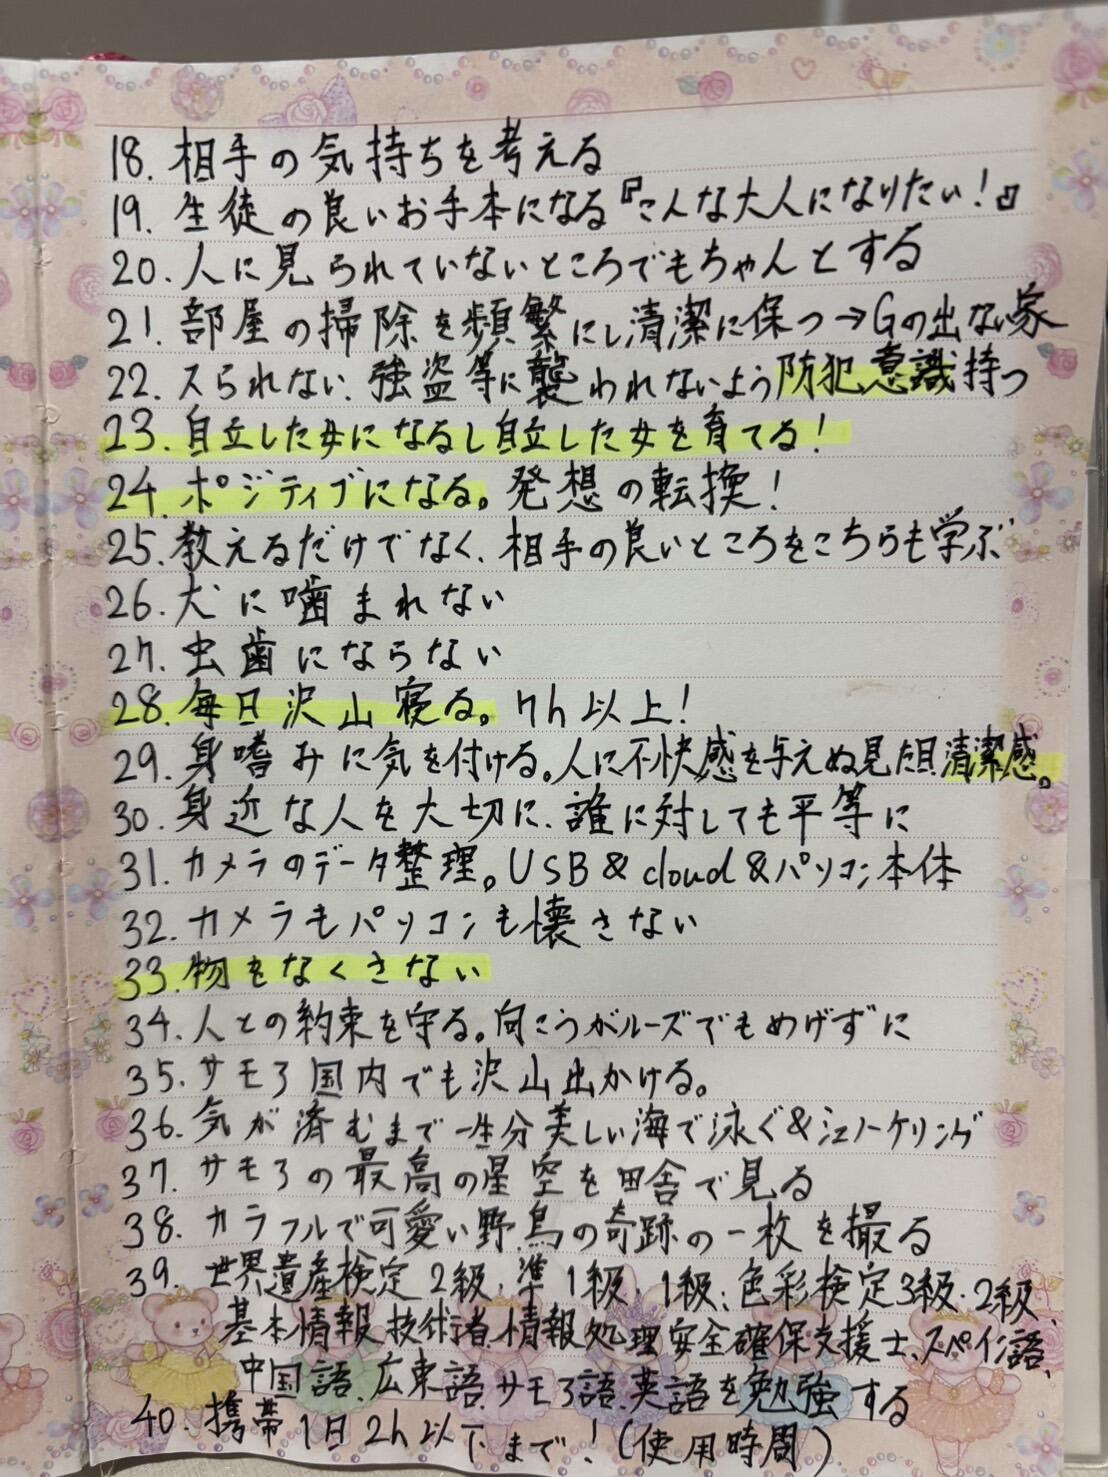 18. 相手の気持ちを考える
19. 生徒の良いお手本になる『こんな大人になりたい!』
20. 人に見られていないところでもちゃんとする
21. 部屋の掃除を頻繁にし清潔に保つ→Gの出ない家
22. スられない、強盗等に襲われないよう防犯意識持つ
23. 自立した女になるし自立した女を育てる!
24. ポジティブになる。発想の転換!
25. 教えるだけでなく、相手の良いところをこちらも学ぶ
26. 犬に噛まれない
27. 虫歯にならない
28. 毎日沢山寝る。7h以上!
29. 身嗜みに気を付ける。人に不快感を与えぬ見た目清潔感。
30. 身近な人を大切に、誰に対しても平等に
31. カメラのデータ整理。USB&cloud&パソコン本体
32. カメラもパソコンも懐さない
33. 物をなくさない
34. 人との約束を守る。向こうがルーズでもめげずに
35. サモア国内でも沢山出かける。
36. 気が済むまで一生分美しい海で泳ぐ&シュノーケリング
37. サモアの最高の星空を田舎で見る
38. カラフルで可愛い野鳥の奇跡の一枚を撮る
39. 世界遺産検定2級、準1級、1級、色彩検定3級、2級、
基本情報技術者、情報処理安全確保支援士、スペイン語、
中国語、広東語、サモア語、英語を勉強する
40. 携帯1日2h以下まで!(使用時間)